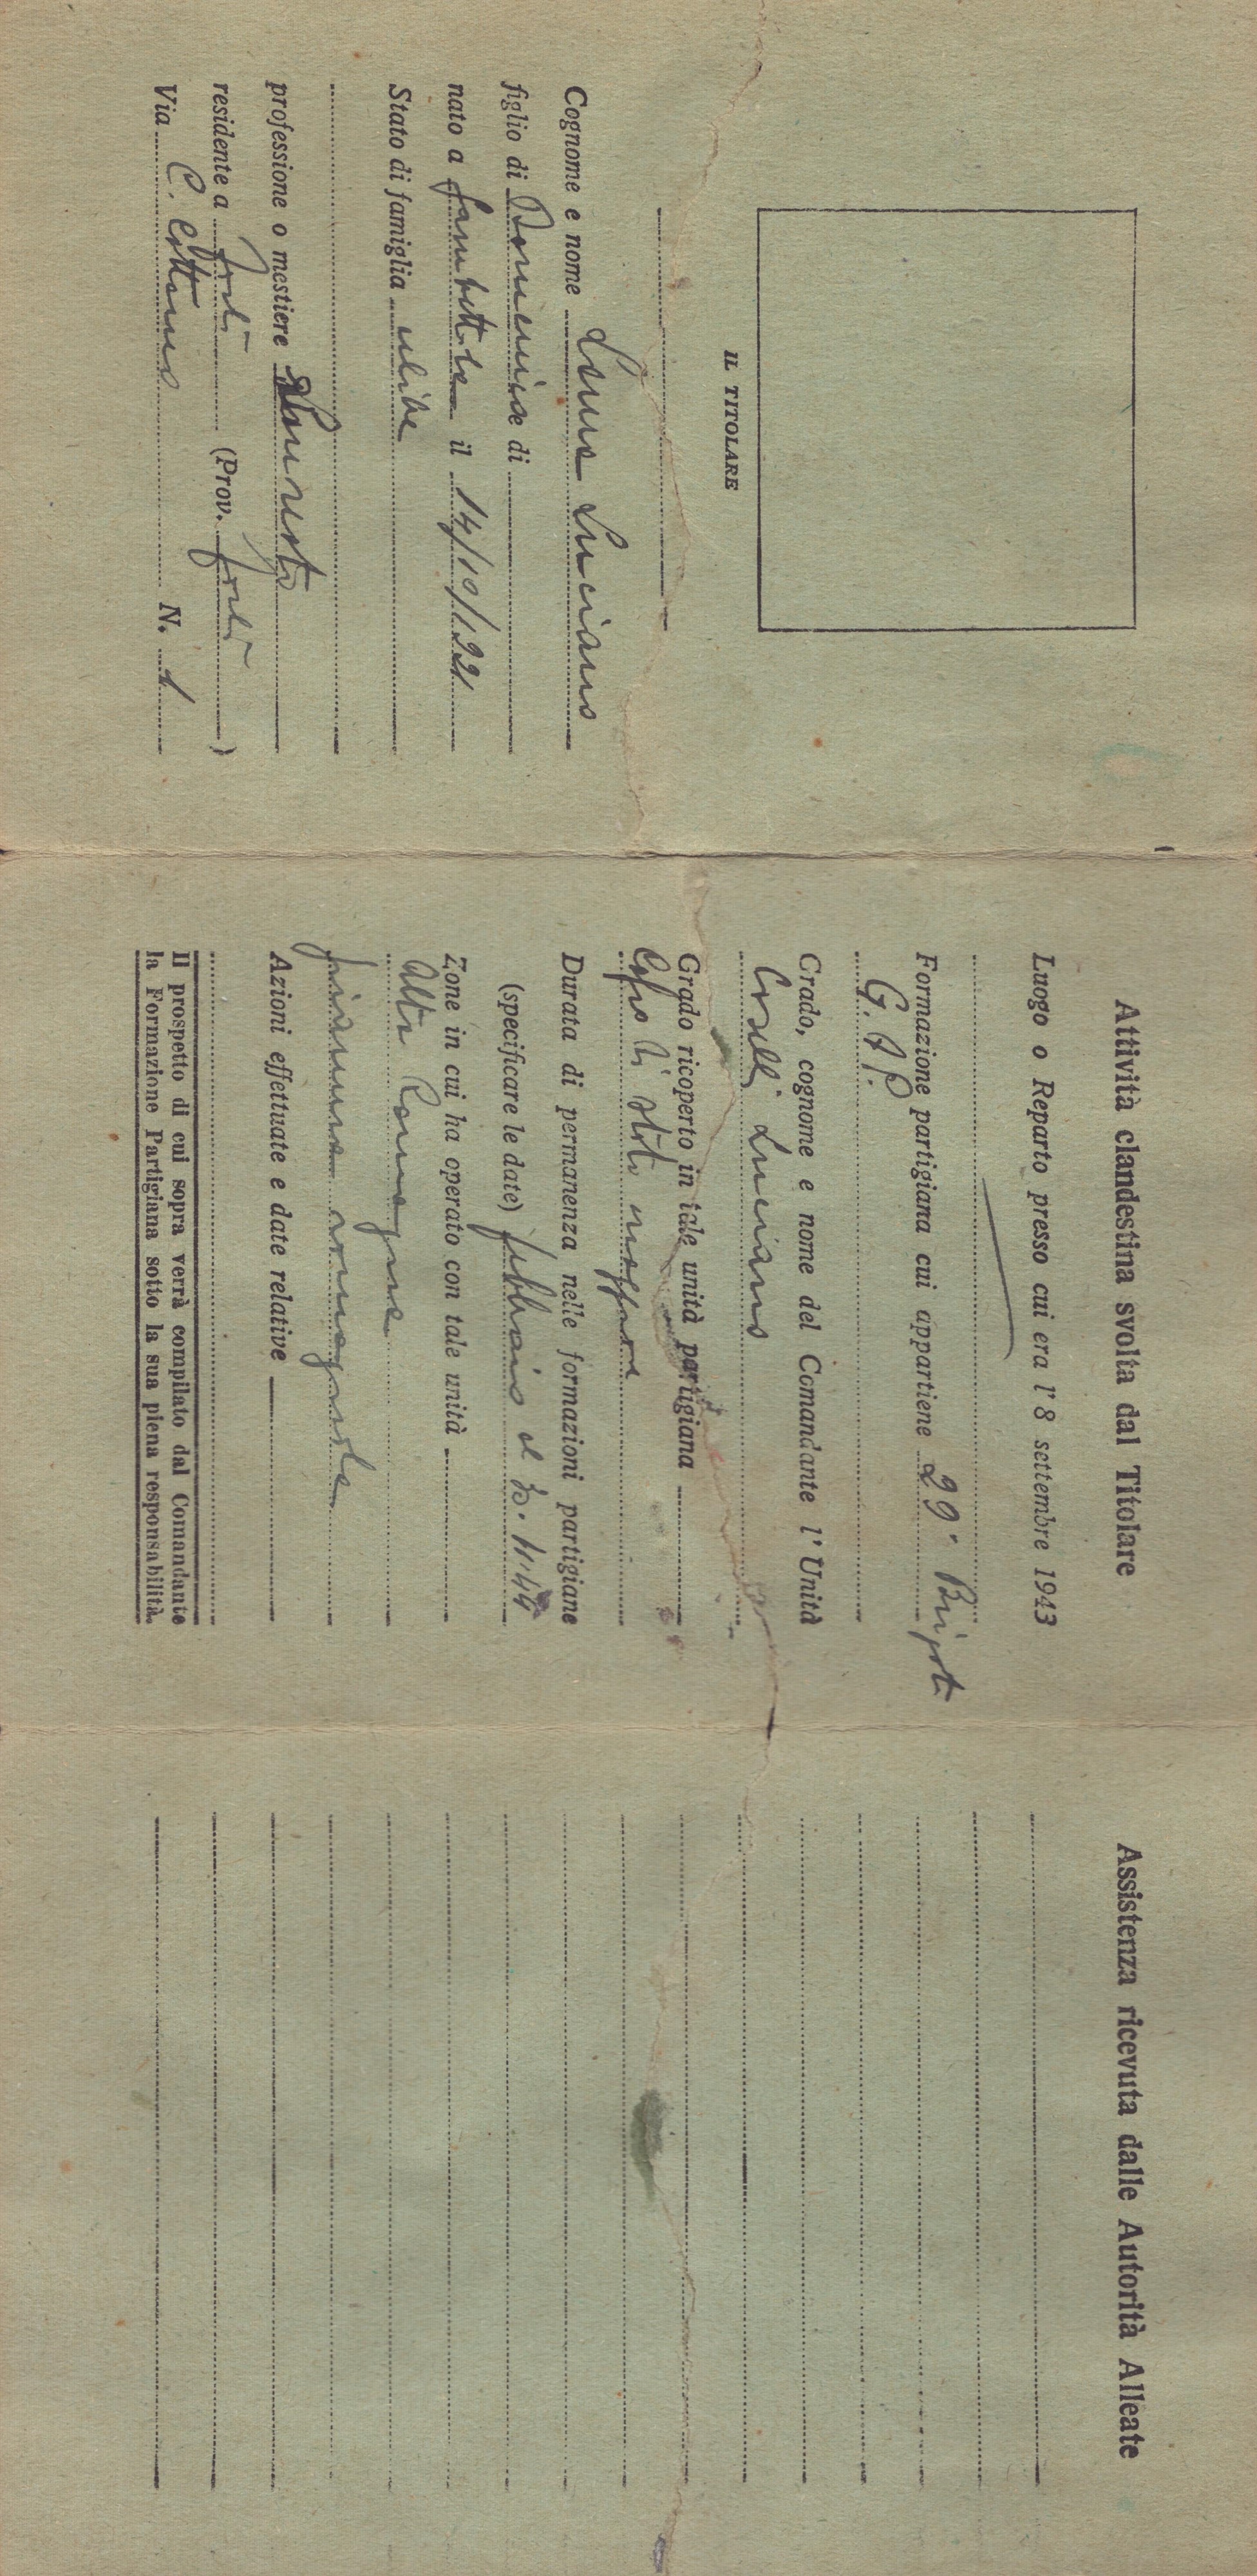 IL TITOLARE
Cognome e nome Lama Luciano
figlio di Domenico e di
nato a Gambettola il 14/10/1921
Stato di famiglia celibe
professione o mestiere
residente a Forlì (Prov. Forlì)
Via C. N. 1
Attività clandestina svolta dal Titolare
Luogo o Reparto presso cui era l'8 settembre 1943
Formazione partigiana cui appartiene 29ª Brigata
G. A. P.
Grado, cognome e nome del Comandante l'Unità
Caselli Luciano
Grado ricoperto in tale unità partigiana
Capo di stato maggiore
Durata di permanenza nelle formazioni partigiane
(specificare le date) febbraio al 30.11.44
Zone in cui ha operato con tale unità
Alta Romagna
pianura romagnola
Azioni effettuate e date relative
Il prospetto di cui sopra verrà compilato dal Comandante
la Formazione Partigiana sotto la sua piena responsabilità.
Assistenza ricevuta dalle Autorità Alleate